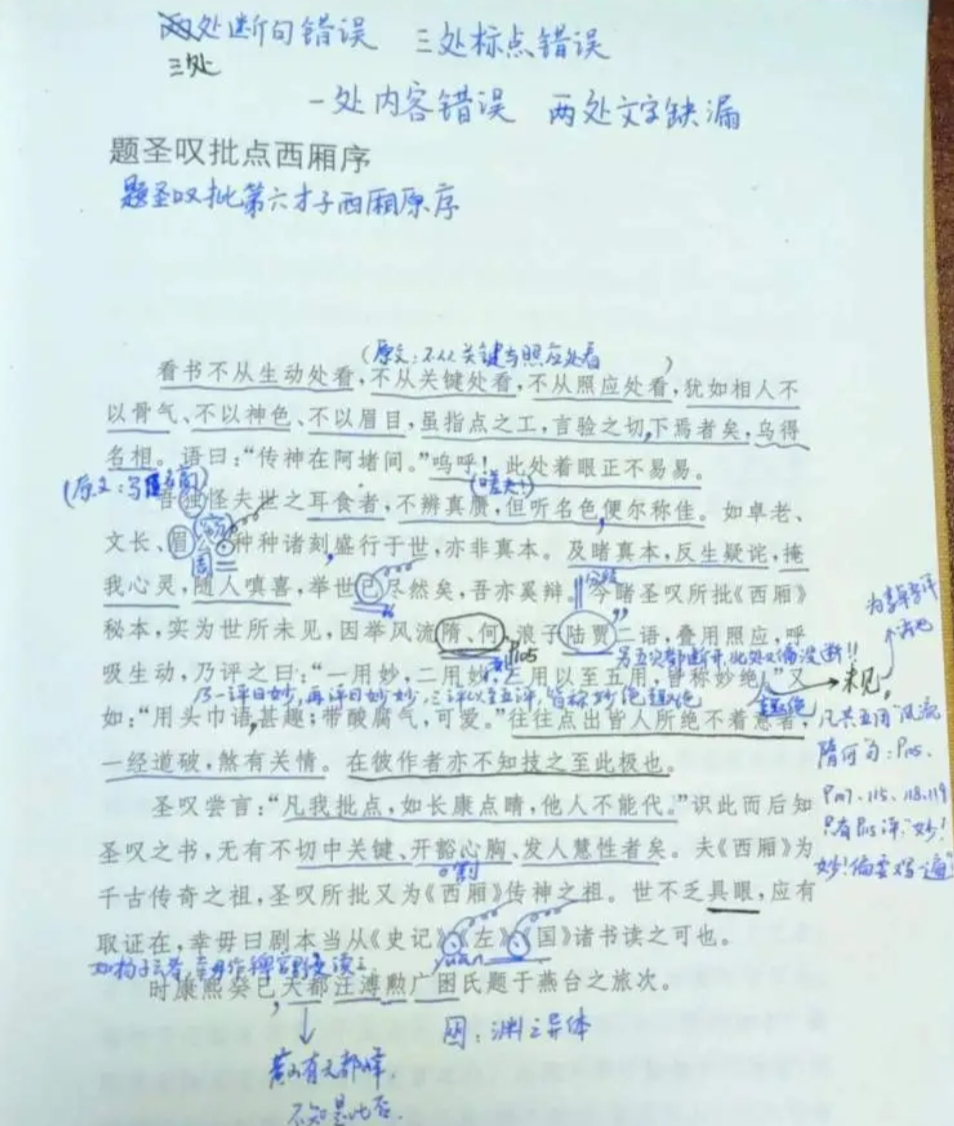 三处断句错误 三处标点错误
一处内容错误 两处文字缺漏
题圣叹批点西厢序
题圣叹批第六才子西厢原序
(原文:不从关键与照应处看)
看书不从生动处看,不从关键处看,不从照应处看,犹如相人不
以骨气、不以神色、不以眉目,虽指点之工,言验之切,下焉者矣,乌得
名相。语曰:“传神在阿堵间。”呜呼!此处着眼正不易易。
(嗟夫!)
吾独怪夫世之耳食者,不辨真赝,但听名色,便尔称佳。如卓老、
文长、眉公,种种诸刻,盛行于世,亦非真本。及睹真本,反生疑诧,掩
我心灵,随人嗔喜,举世已尽然矣,吾亦奚辩。今睹圣叹所批《西厢》
分段
秘本,实为世所未见,因举风流隋、何,浪子陆贾二语,叠用照应,呼
P105
另五次都断开,此处又偏没断!!
吸生动,乃评之曰:“一用妙,二用妙,三用以至五用,皆称妙绝。”又
乃一评曰妙,再评曰妙妙,三评以至五评,皆称妙绝趣绝
趣绝
未见。
如:“用头巾语,甚趣;带酸腐气,可爱。”往往点出皆人所绝不着意者,
凡共五用“风流
隋何”句:P105、
P107、115、118、119
只有P115评:“妙!
妙!偏要写遍”
一经道破,煞有关情。在彼作者亦不知技之至此极也。
圣叹尝言:“凡我批点,如长康点睛,他人不能代。”识此而后知
圣叹之书,无有不切中关键、开豁心胸、发人慧性者矣。夫《西厢》为
千古传奇之祖,圣叹所批又为《西厢》传神之祖。世不乏具眼,应有
取证在,幸毋曰剧本当从《史记》《左》《国》诸书读之可也。
时康熙癸巳,天都汪溥勲广囦氏题于燕台之旅次。
囦:渊之异体
黄山有天都峰,
不知是此否.